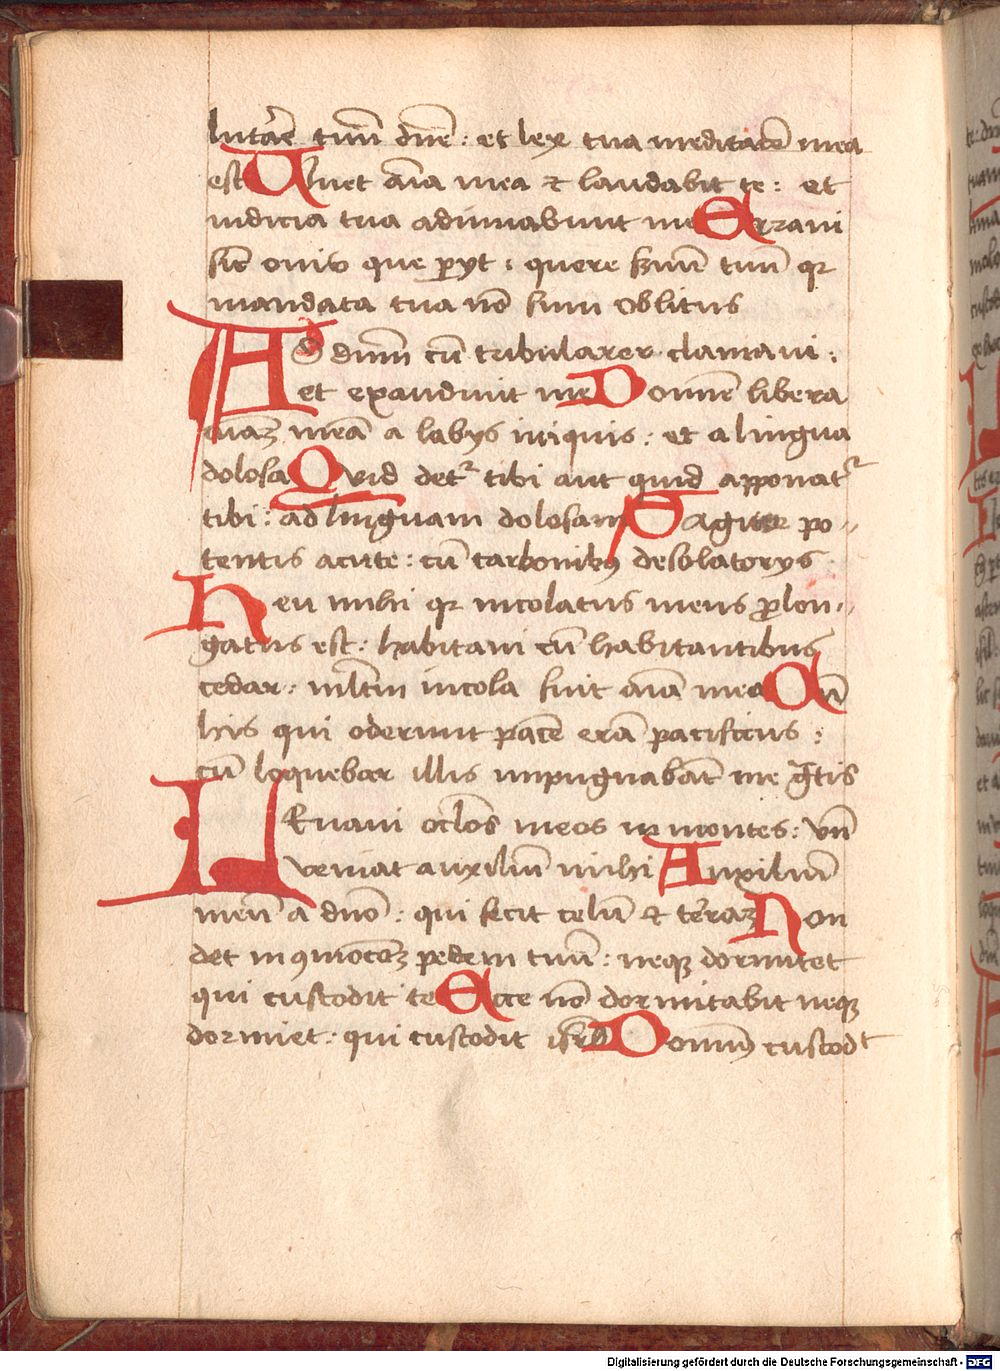 lutare tuū dn̄e : et lex tua meditatō mea
est Uiuet aīa mea ⁊ laudabit te : et
iudicia tua adiuuabunt me Erraui
sic̄ ouis que ꝑyt : quere ſeruū tuū qr
mandata tua nō sum oblitus
AD dn̄m cū tribularer clamaui :
et exaudiuit me Domine libera
aīaꝫ meā a labys iniquis : et a lingua
dolosa Quid det͛ tibi aut quid apponat͛
tibi : ad linguam dolosam Sagitte po-
tentis acute : cū carbonibꝫ desolatorys
Heu mihi qr incolatus meus ꝓlon-
gatus est : habitaui cū habitantibus
cedar : ml̄tm incola fuit aīa mea Cū
his qui oderunt pacē erā pacificus :
cū loquebar illis impugnabāt me gr̄tis
LEuaui oc̄los meos in montes : vn̄
veniat auxiliū mihi Auxiliū
meū a dn̄o : qui fecit celū ⁊ terraꝫ Non
det in ꝯmotōeꝫ pedem tuū : neqꝫ dormitet
qui custodit te Ecce nō dormitabit neqꝫ
dormiet : qui custodit isrl̄ Domin9 custodt
Digitalisierung gefördert durch die Deutsche Forschungsgemeinschaft - DFG